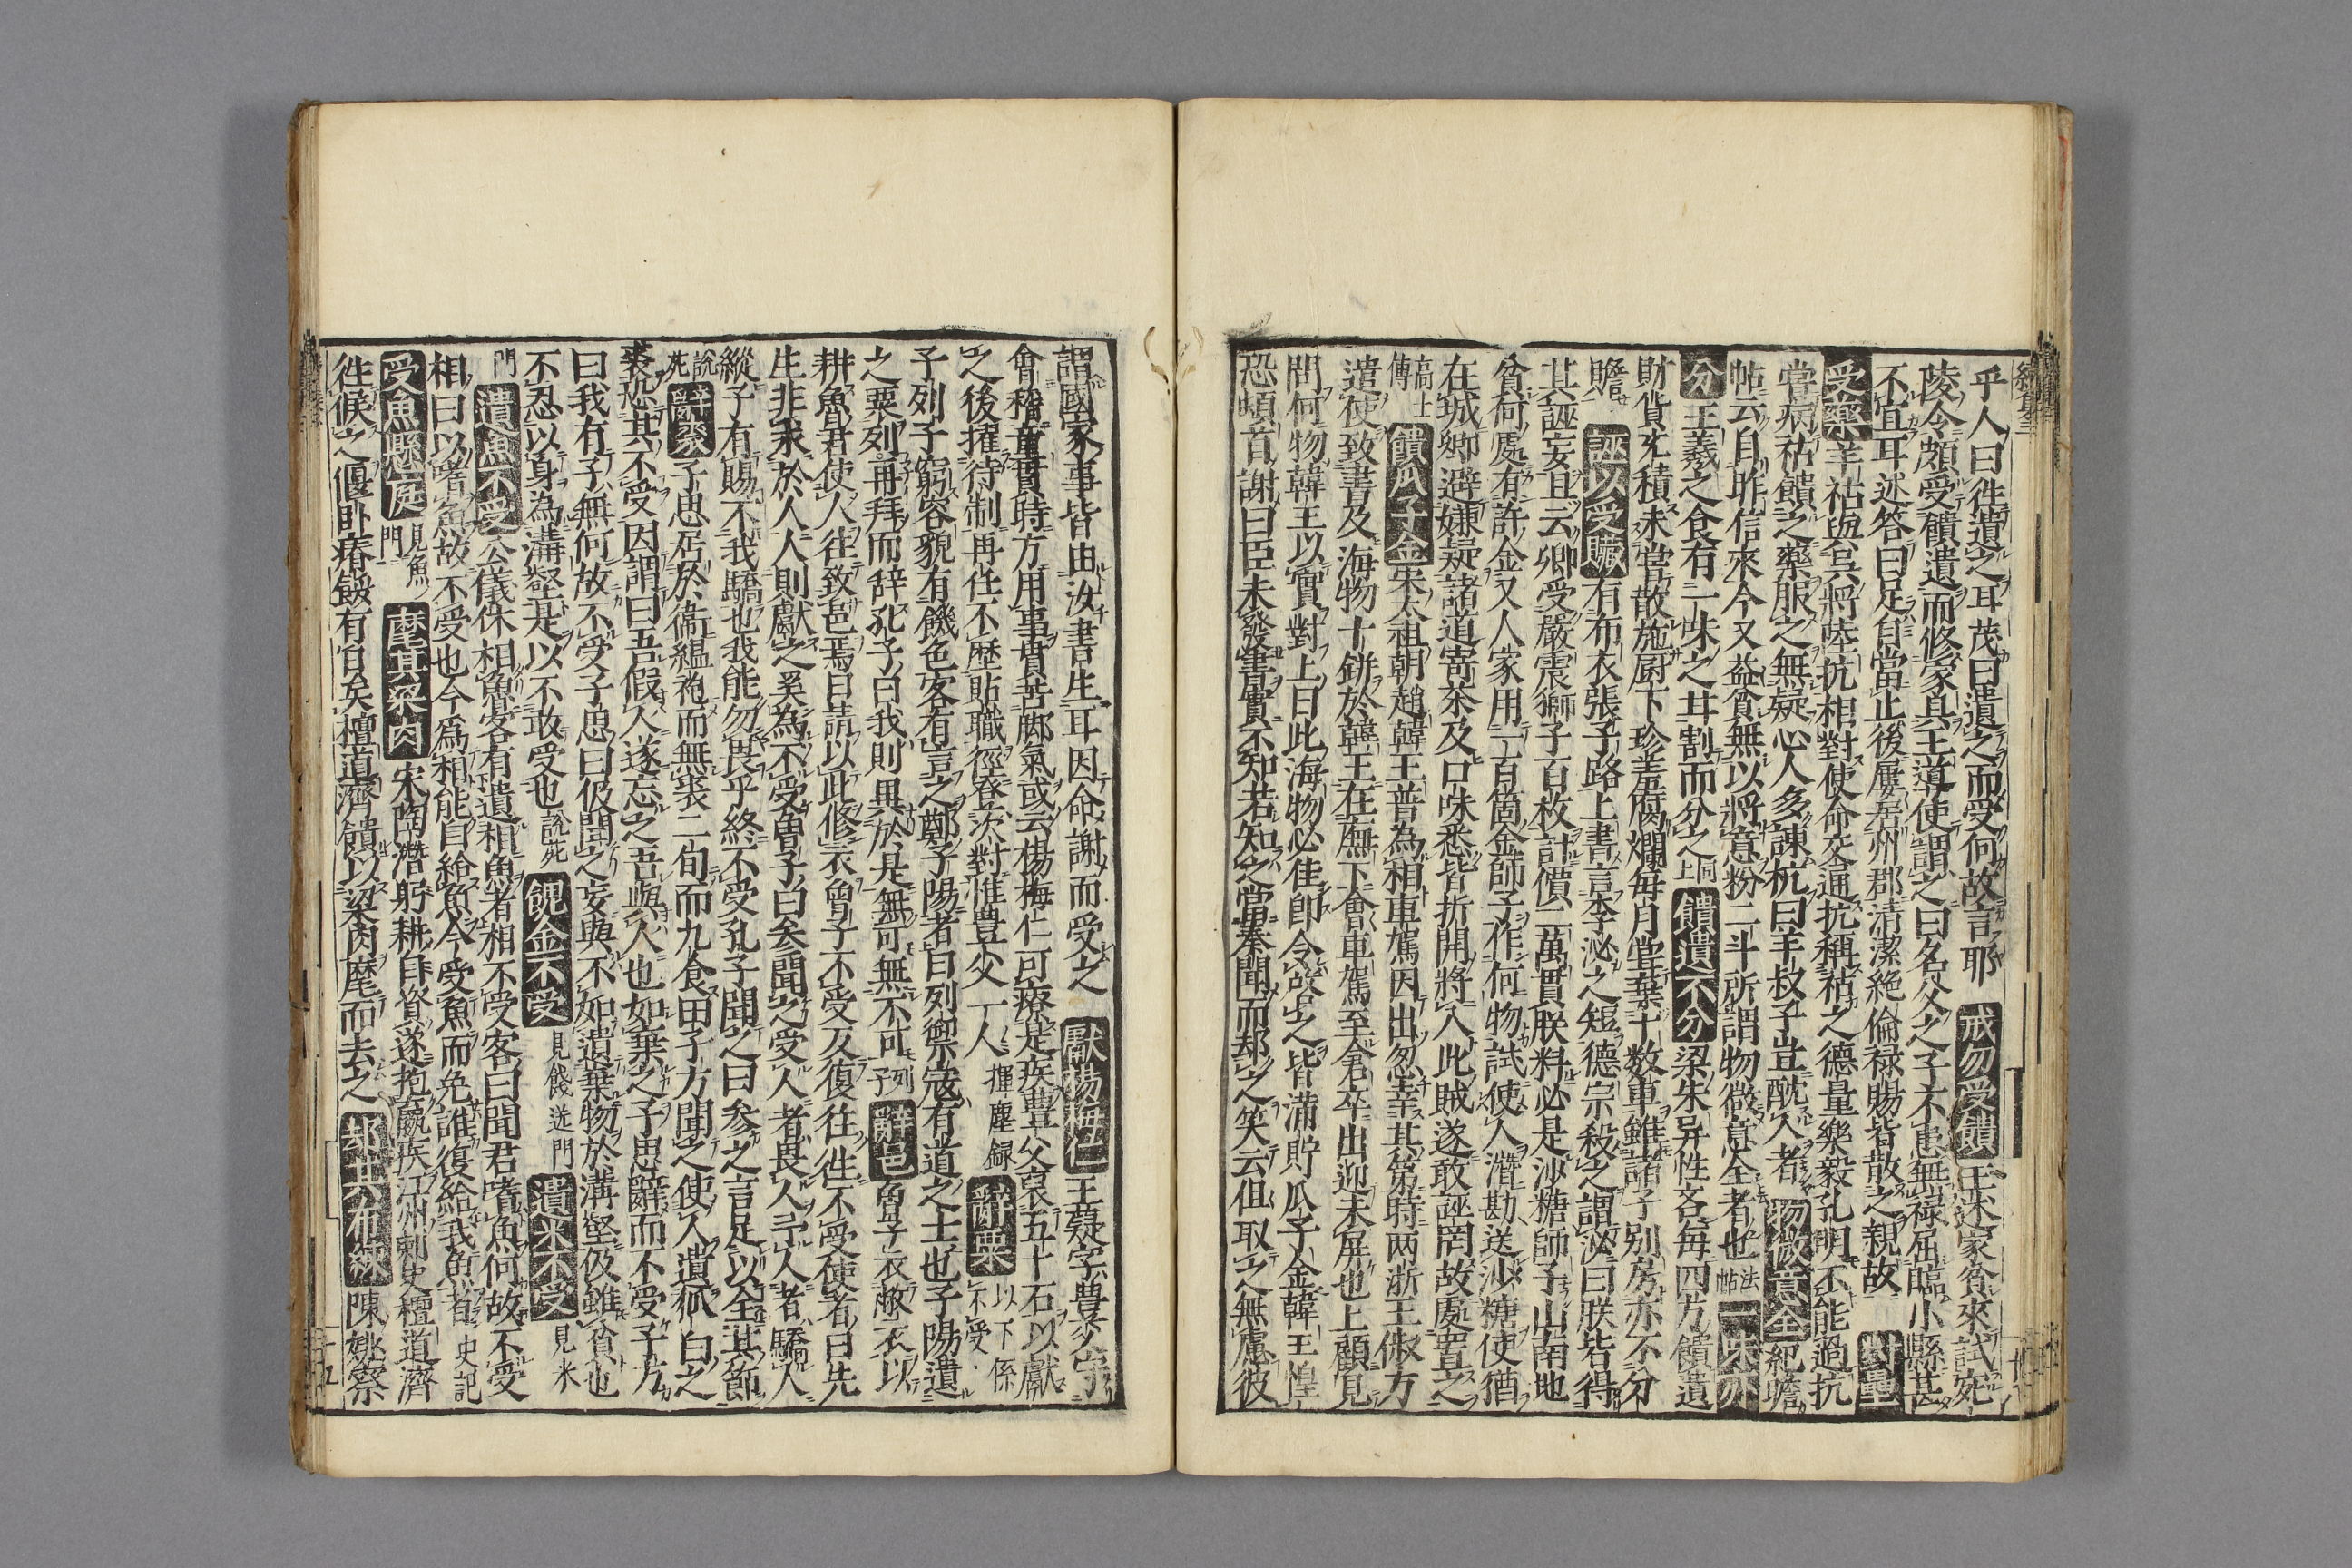 乎人曰徃遺之耳茂曰遺之而受何故言耶 戒勿受饋 王述家貧來試宛
陵令頗受饋遺而修家具王導使謂之曰名父之子不患無祿屈臨小縣甚
不宜耳述答曰足自當止後屢居州郡清潔絶倫祿賜皆散之親故 對壘
受藥 羊祜與吳將陸抗相對使命交通抗稱祜之德量樂毅孔明不能過抗
嘗病祜饋之藥服之無疑心人多諫杭曰羊叔子豈酖人者 物微意全 紀瞻
帖云自昨信來今又益貧無以將意粉二斗所謂物微意全者也法帖 一味亦
分 王羲之食有一味之甘割而分之同上 饋遺不分 梁朱异性吝每四方饋遺
財貨充積未嘗散施厨下珍羞腐爛每月常棄十数車雖諸子别房亦不分
贍 誣以受贓 有布衣張子路上書言李泌之短德宗殺之謂泌曰朕皆得
其誣妄且云卿受嚴震獅子百枚計價二萬貫朕料必是沙糖師子山南地
貧何處有許金又人家用一百箇金師子作何物試使人潛勘送沙糖使猶
在城卿避嫌疑諸道寄茶及口味悉皆折開將入此賊遂敢誣罔故處置之
高士傳 饋瓜子金 宋太祖朝趙韓王普為相車駕因出忽幸其第時两浙王俶方
遣使致書及海物十缾於韓王在廡下會車駕至倉卒出迎未屏也上顧見
問何物韓王以實對上曰此海物必佳即令啓之皆滿貯瓜子金韓王惶
恐頓首謝曰臣未發書實不知若知之當奏聞而却之笑云但取之無慮彼
謂國家事皆由汝書生耳因命謝而受之 獻楊梅仁 王嶷字豊父守
會稽童貫時方用事貫苦脚氣或云楊梅仁可療是疾豊父裒五十石以獻
之後擢待制再任不歴貼職徑登次對惟豊父一人揮塵録 辭粟 以下係不受
子列子窮容貌有饑色客有言之鄭子陽者曰列禦寇有道之士也子陽遺
之粟列再拜而辞孔子曰我則異於是無可無不可列子 辭邑 曾子衣敝衣以
耕魯君使人往致邑焉曰請以此修衣曾子不受反復往徃不受使者曰先
生非求於人人則獻之奚為不受曽子曰矣聞之受人者畏人予人者驕人
縱子有賜不我驕也我能勿畏乎終不受孔子聞之曰参之言足以全其節
説苑 辭裘 子思居於衞縕袍而無裘二旬而九食田子方聞之使人遺狐白之
裘恐其不受因謂曰吾假人遂忘之吾與人也如棄之子思辭而不受子方
曰我有子無何故不受子思曰伋聞之妄與不如遺棄物於溝壑伋雖貧也
不忍以身為溝壑是以不敢受也説苑 餽金不受 見餞送門 遺米不受 見米
門 遺魚不受 公儀休相魯客有遺相魚者相不受客曰聞君嗜魚何故不受
相曰以嗜魚故不受也今為相能自給魚今受魚而免誰復給我魚者史記
受魚懸庭 見魚門 麾其粱肉 宋陶潛躬耕自資遂抱羸疾江州刺史檀道濟
徃候之偃卧瘠餒有日矣檀道濟饋以粱肉麾而去之 却其布練 陳姚察